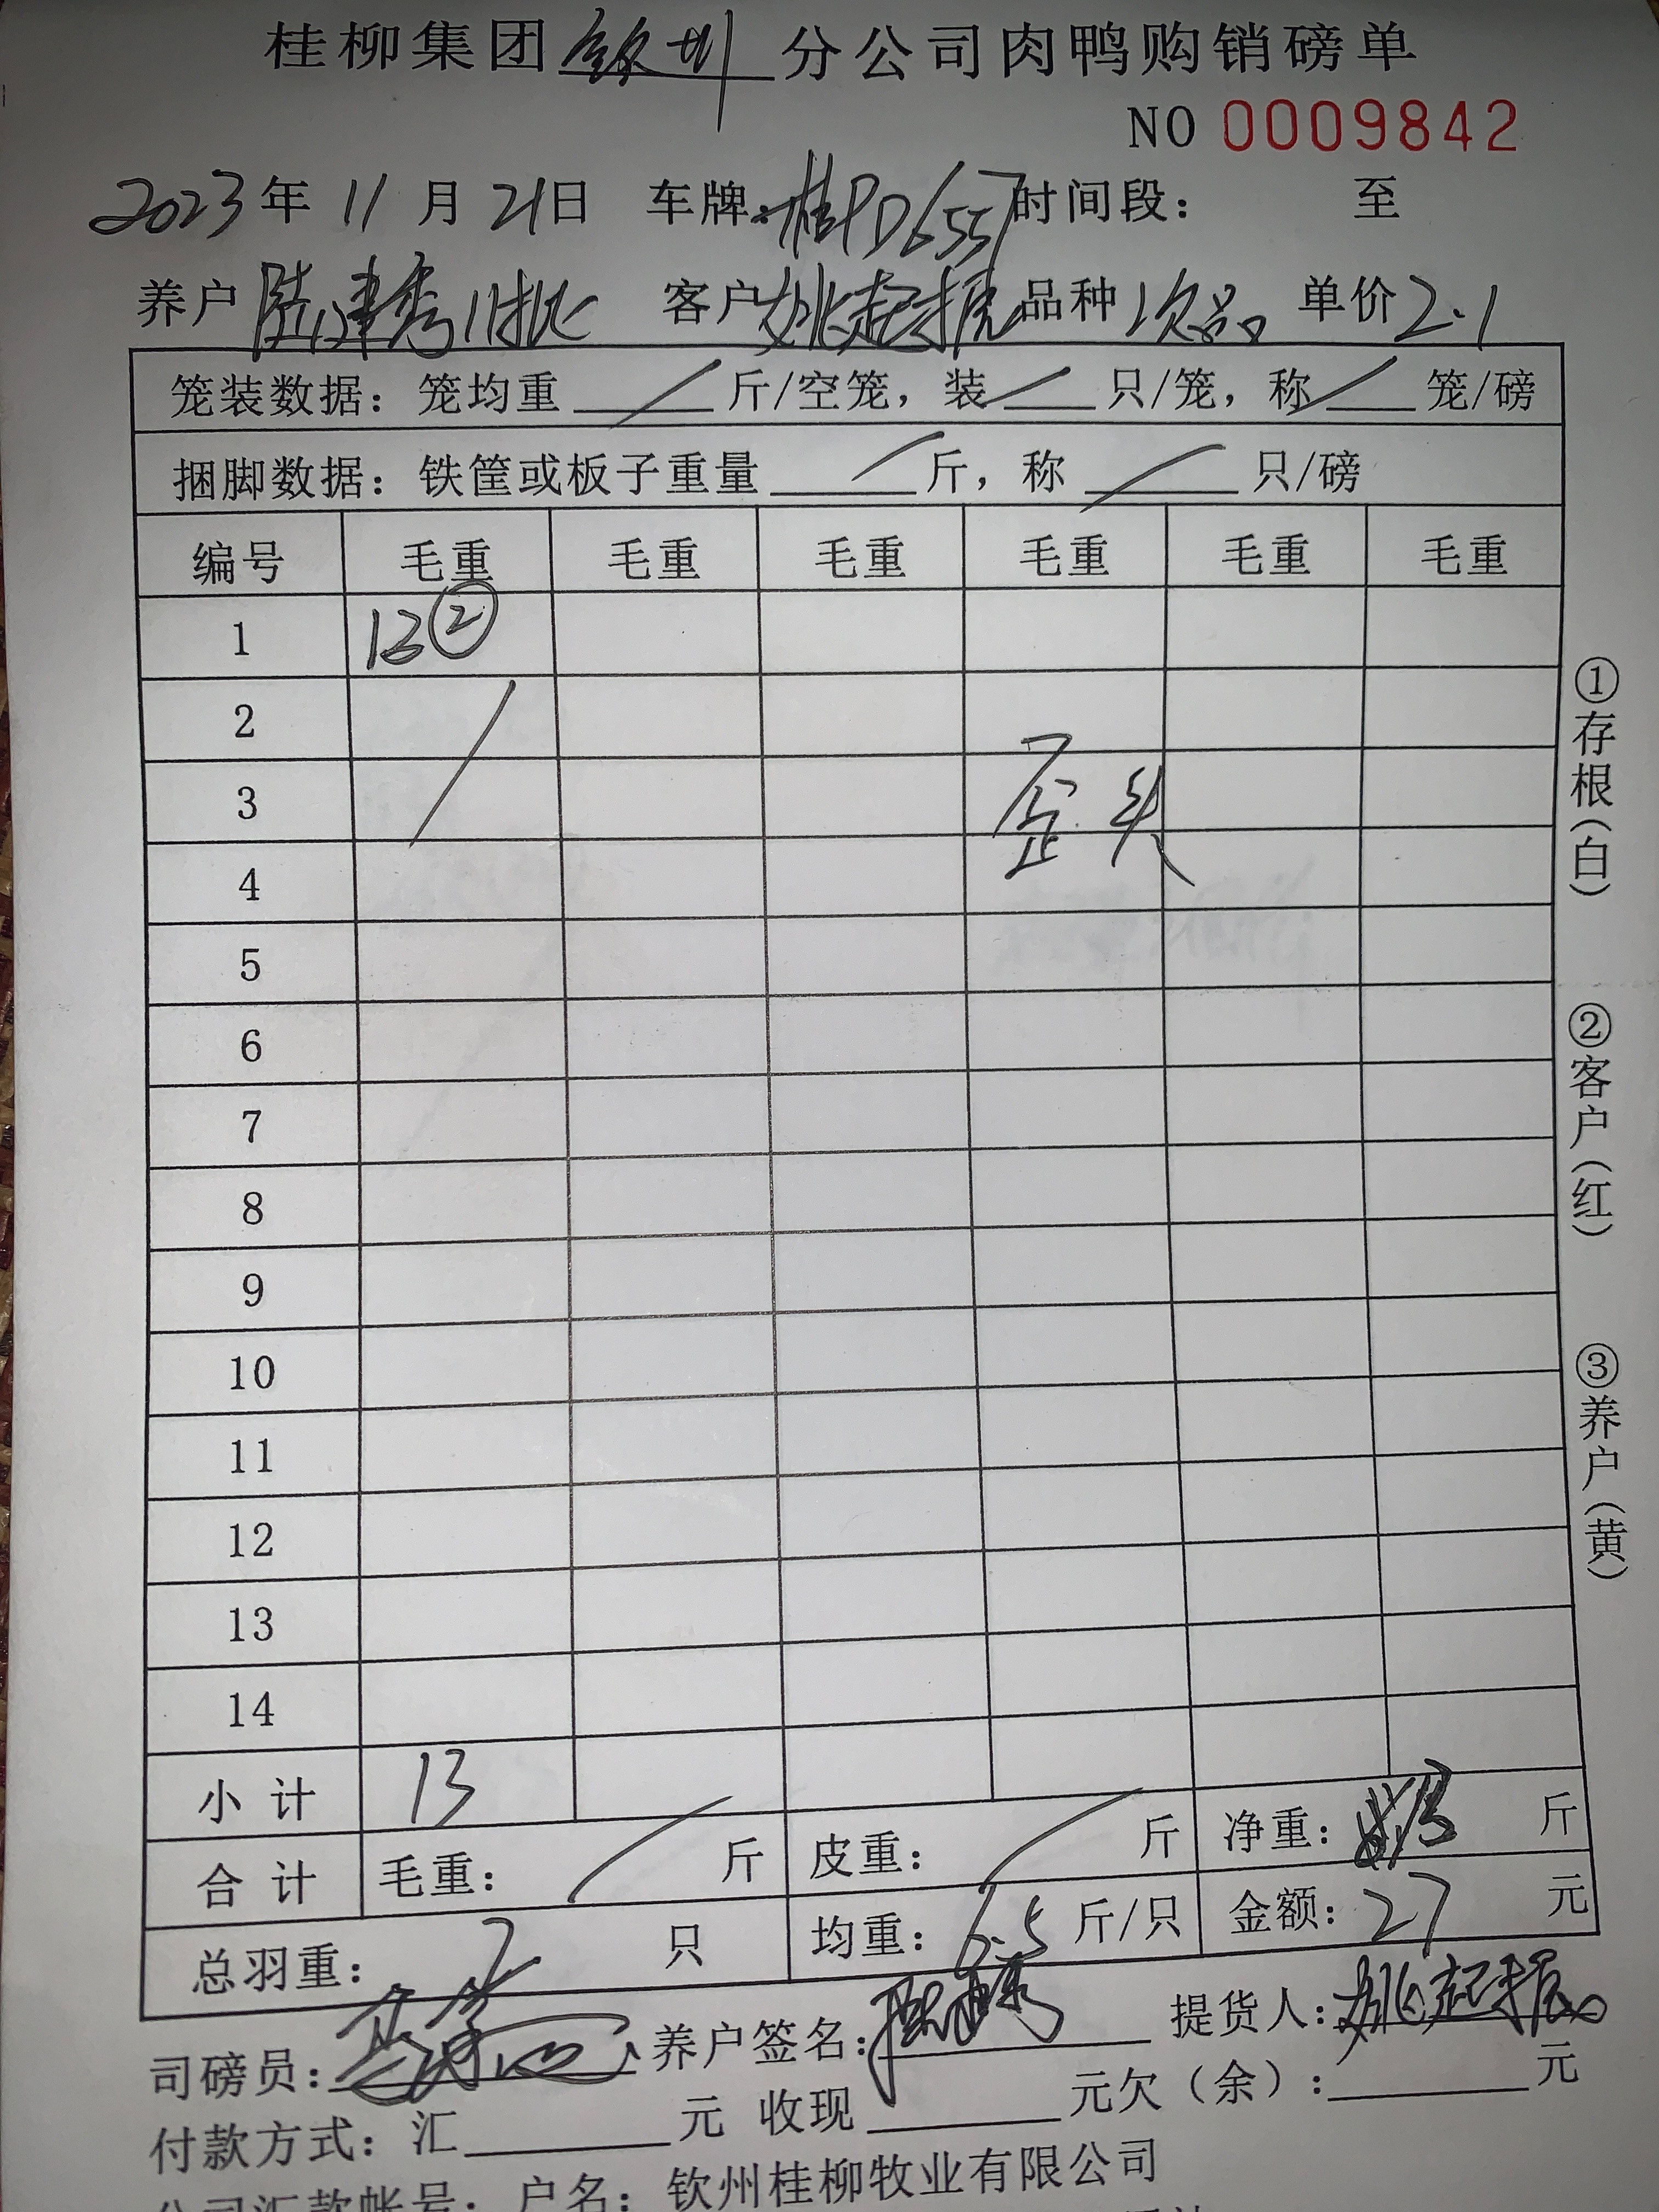 桂柳集团钦州分公司肉鸭购销磅单
NO 0009842
2023年11月21日 车牌:桂PD6557时间段: 至
养户陆建秀11批 客户姚起振品种次品 单价2.1
笼装数据:笼均重 / 斤/空笼,装 / 只/笼,称 / 笼/磅
捆脚数据:铁筐或板子重量 / 斤,称 / 只/磅
编号 毛重 毛重 毛重 毛重 毛重 毛重
1 13②
2 /
3 歪头
4
5
6
7
8
9
10
11
12
13
14
小计 13
合计 毛重: / 斤 皮重: / 斤 净重:13 斤
总羽重: 2 只 均重:6.5斤/只 金额:27 元
司磅员: 养户签名: 提货人:姚起振
付款方式:汇 元 收现 元欠(余): 元
公司汇款帐号:户名:钦州桂柳牧业有限公司
①存根(白)
②客户(红)
③养户(黄)